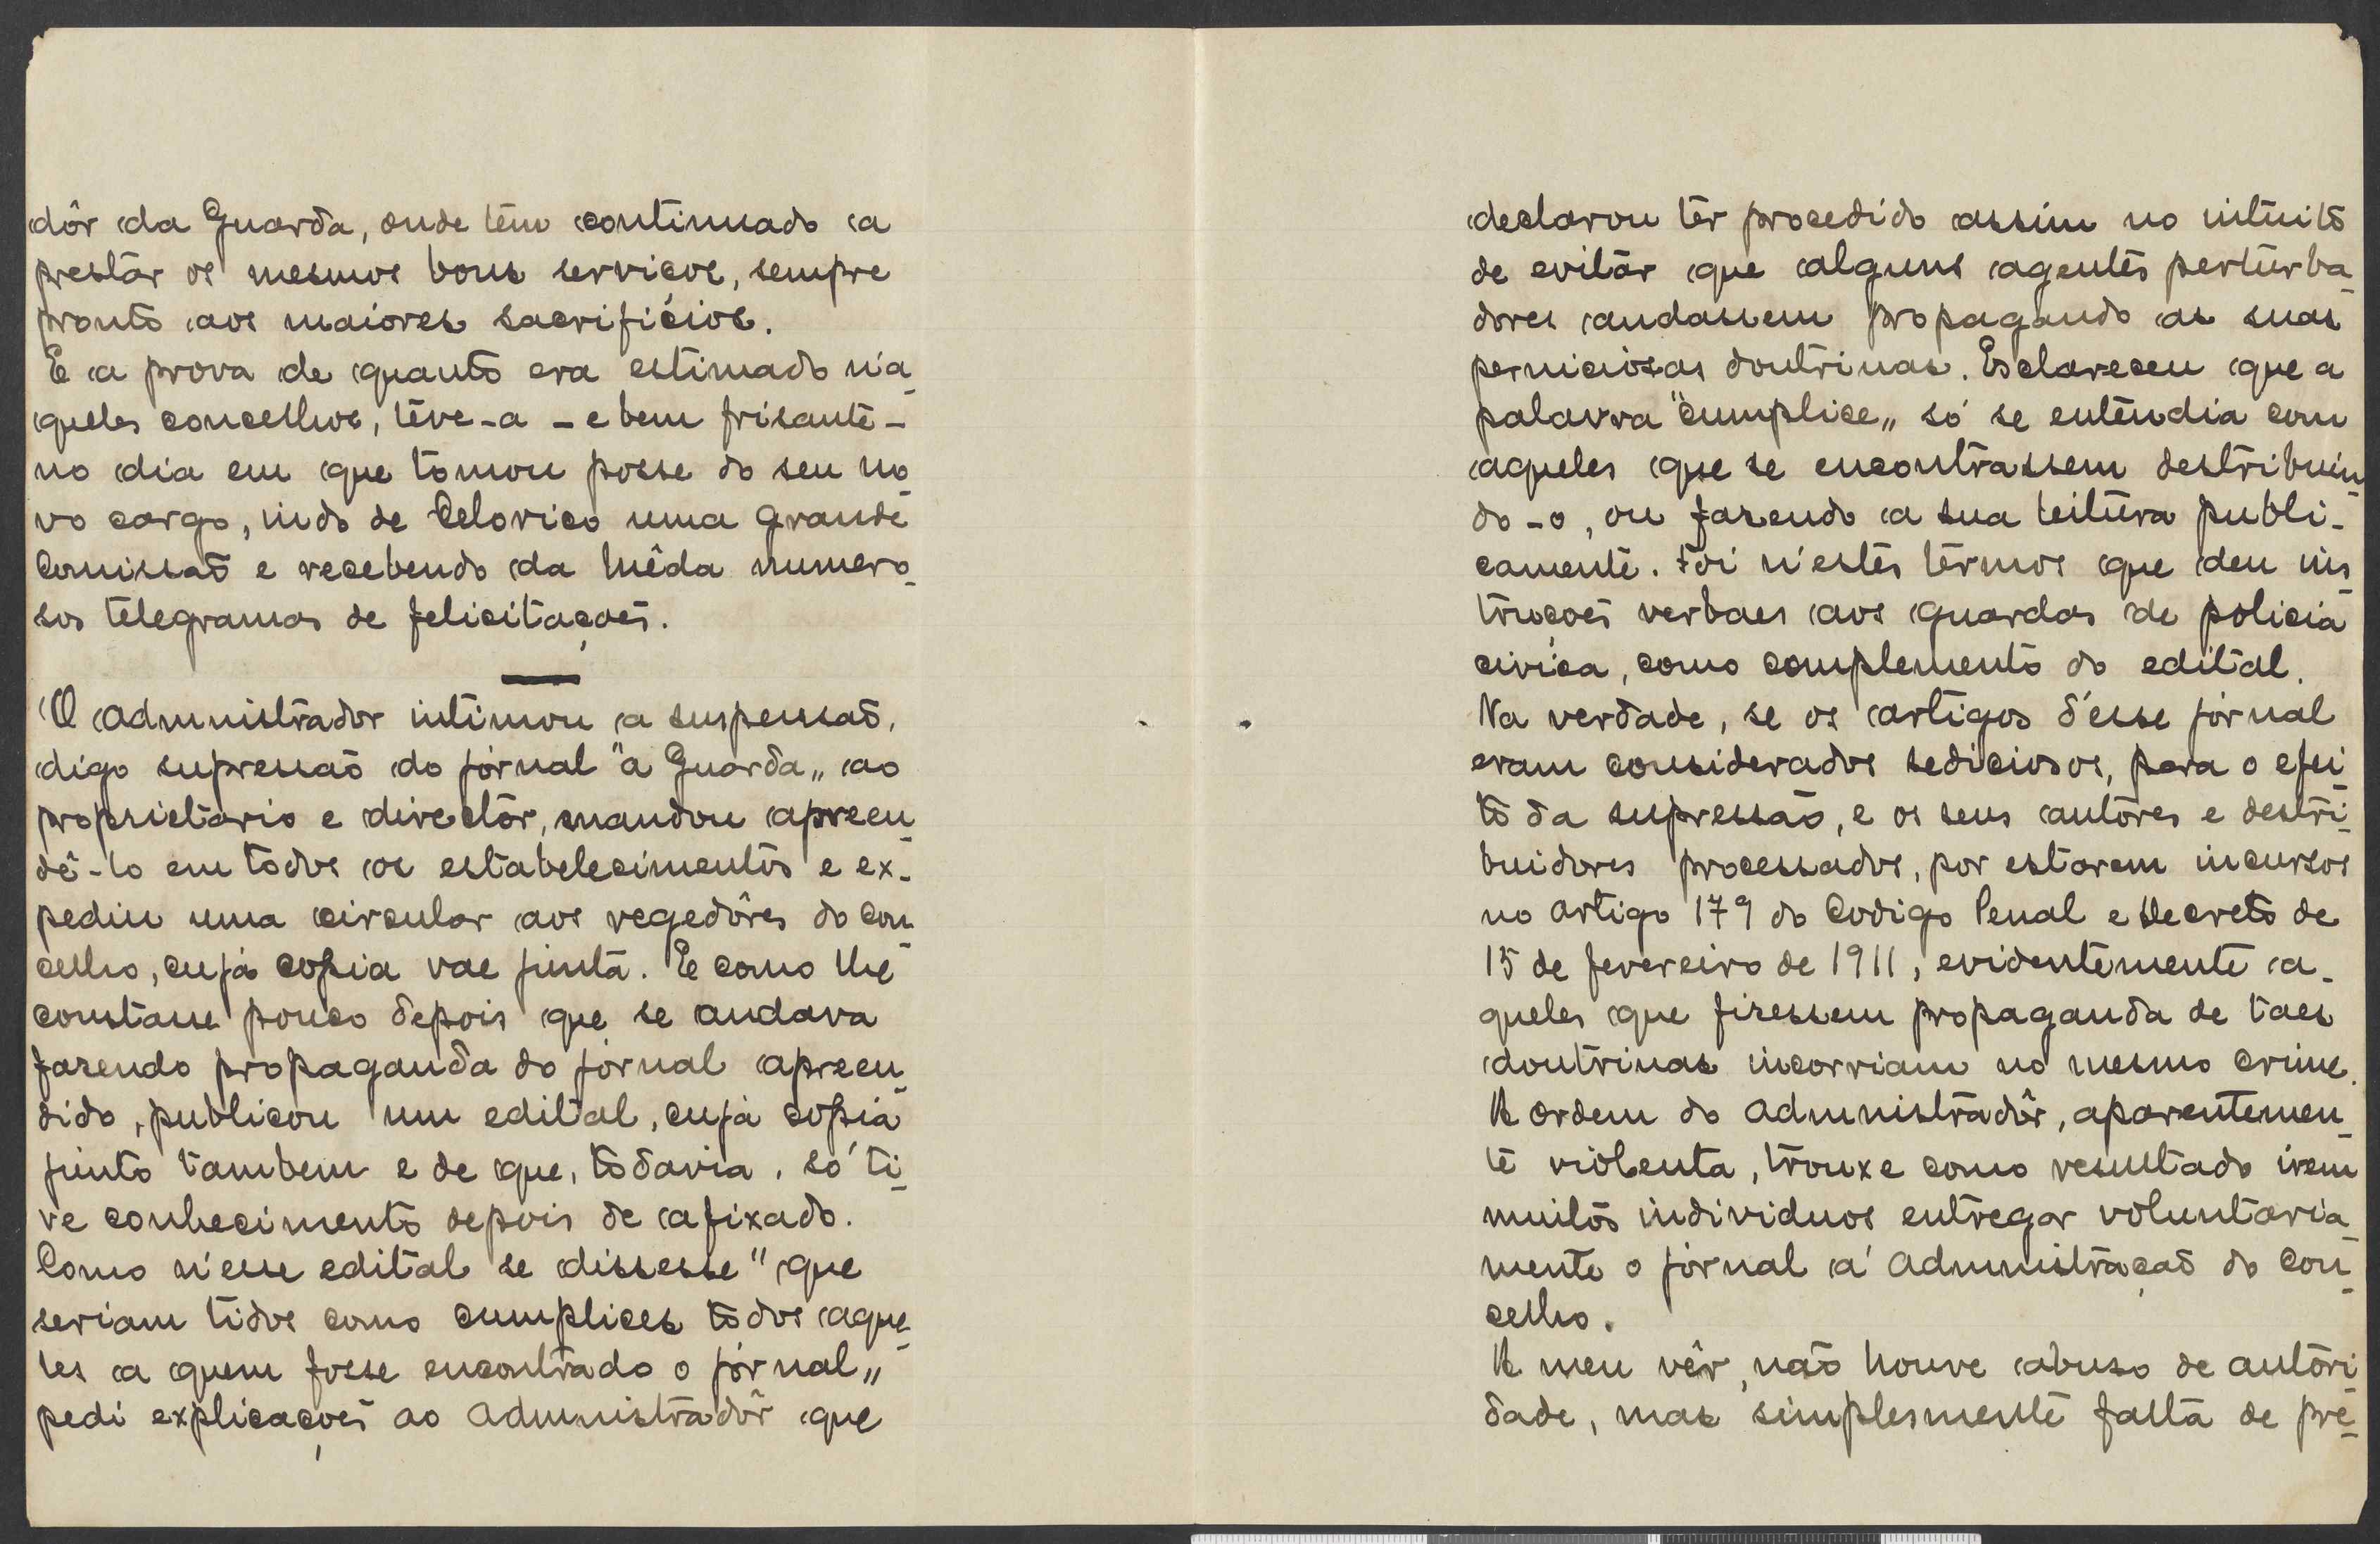 dôr da Guarda, onde tem continuado a
prestár os mesmos bons serviços, sempre
pronto aos maiores sacrificios.
E a prova de quanto era estimado n'a-
queles concelhos, teve-a - e bem frisante -
no dia em que tomou posse do seu no-
vo cargo, indo de Celorico uma grande
Comissaõ e recebendo da Mêda numero-
sos telegramas de felicitaçoẽs.
O Administrador intimou a suspensaõ,
digo supressaõ do jornal "a Guarda„ ao
proprietario e directór, mandou apreen-
dê-lo em todos os estabelecimentos e ex-
pediu uma circular aos regedôres do con-
celho, cuja copia vae junta. E como lhe
constasse pouco depois que se andava
fazendo propaganda do jornal apreen-
dido, publicou um edital, cuja copia
junto tambem e de que, todavia, só ti-
ve conhecimento depois de afixado.
Como n'esse edital se dissesse "que
seriam tidos como cumplices todos aque-
les a quem fosse encontrado o jornal„
pedi explicaçoẽs ao Administradôr que
declarou têr procedido assim no intuito
de evitár que alguns agentes perturba-
dores andassem propagando as suas
perniciosas doutrinas. Esclareceu que a
palavra "cumplice„ só se entendia com
aqueles que se encontrassem destribuin-
do-o, ou fazendo a sua leitura publi-
camente. Foi n'estes termos que deu ins-
truçoẽs verbaes aos guardas de policia
civica, como complemento do edital.
Na verdade, se os artigos d'esse jornal
eram considerados sediciosos, para o efei-
to da supressaõ, e os seus autores e destri-
buidores processados, por estarem incursos
no artigo 179 do Codigo Penal e Decreto de
15 de fevereiro de 1911, evidentemente a-
queles que fizessem propaganda de taes
doutrinas incorriam no mesmo crime.
A ordem do Administradôr, aparentemen-
te violenta, trouxe como resultado irem
muitos individuos entregar voluntaria-
mente o jornal á Administraçaõ do Con-
celho.
A meu vêr, naõ houve abuso de autori-
dade, mas simplesmente falta de pre-